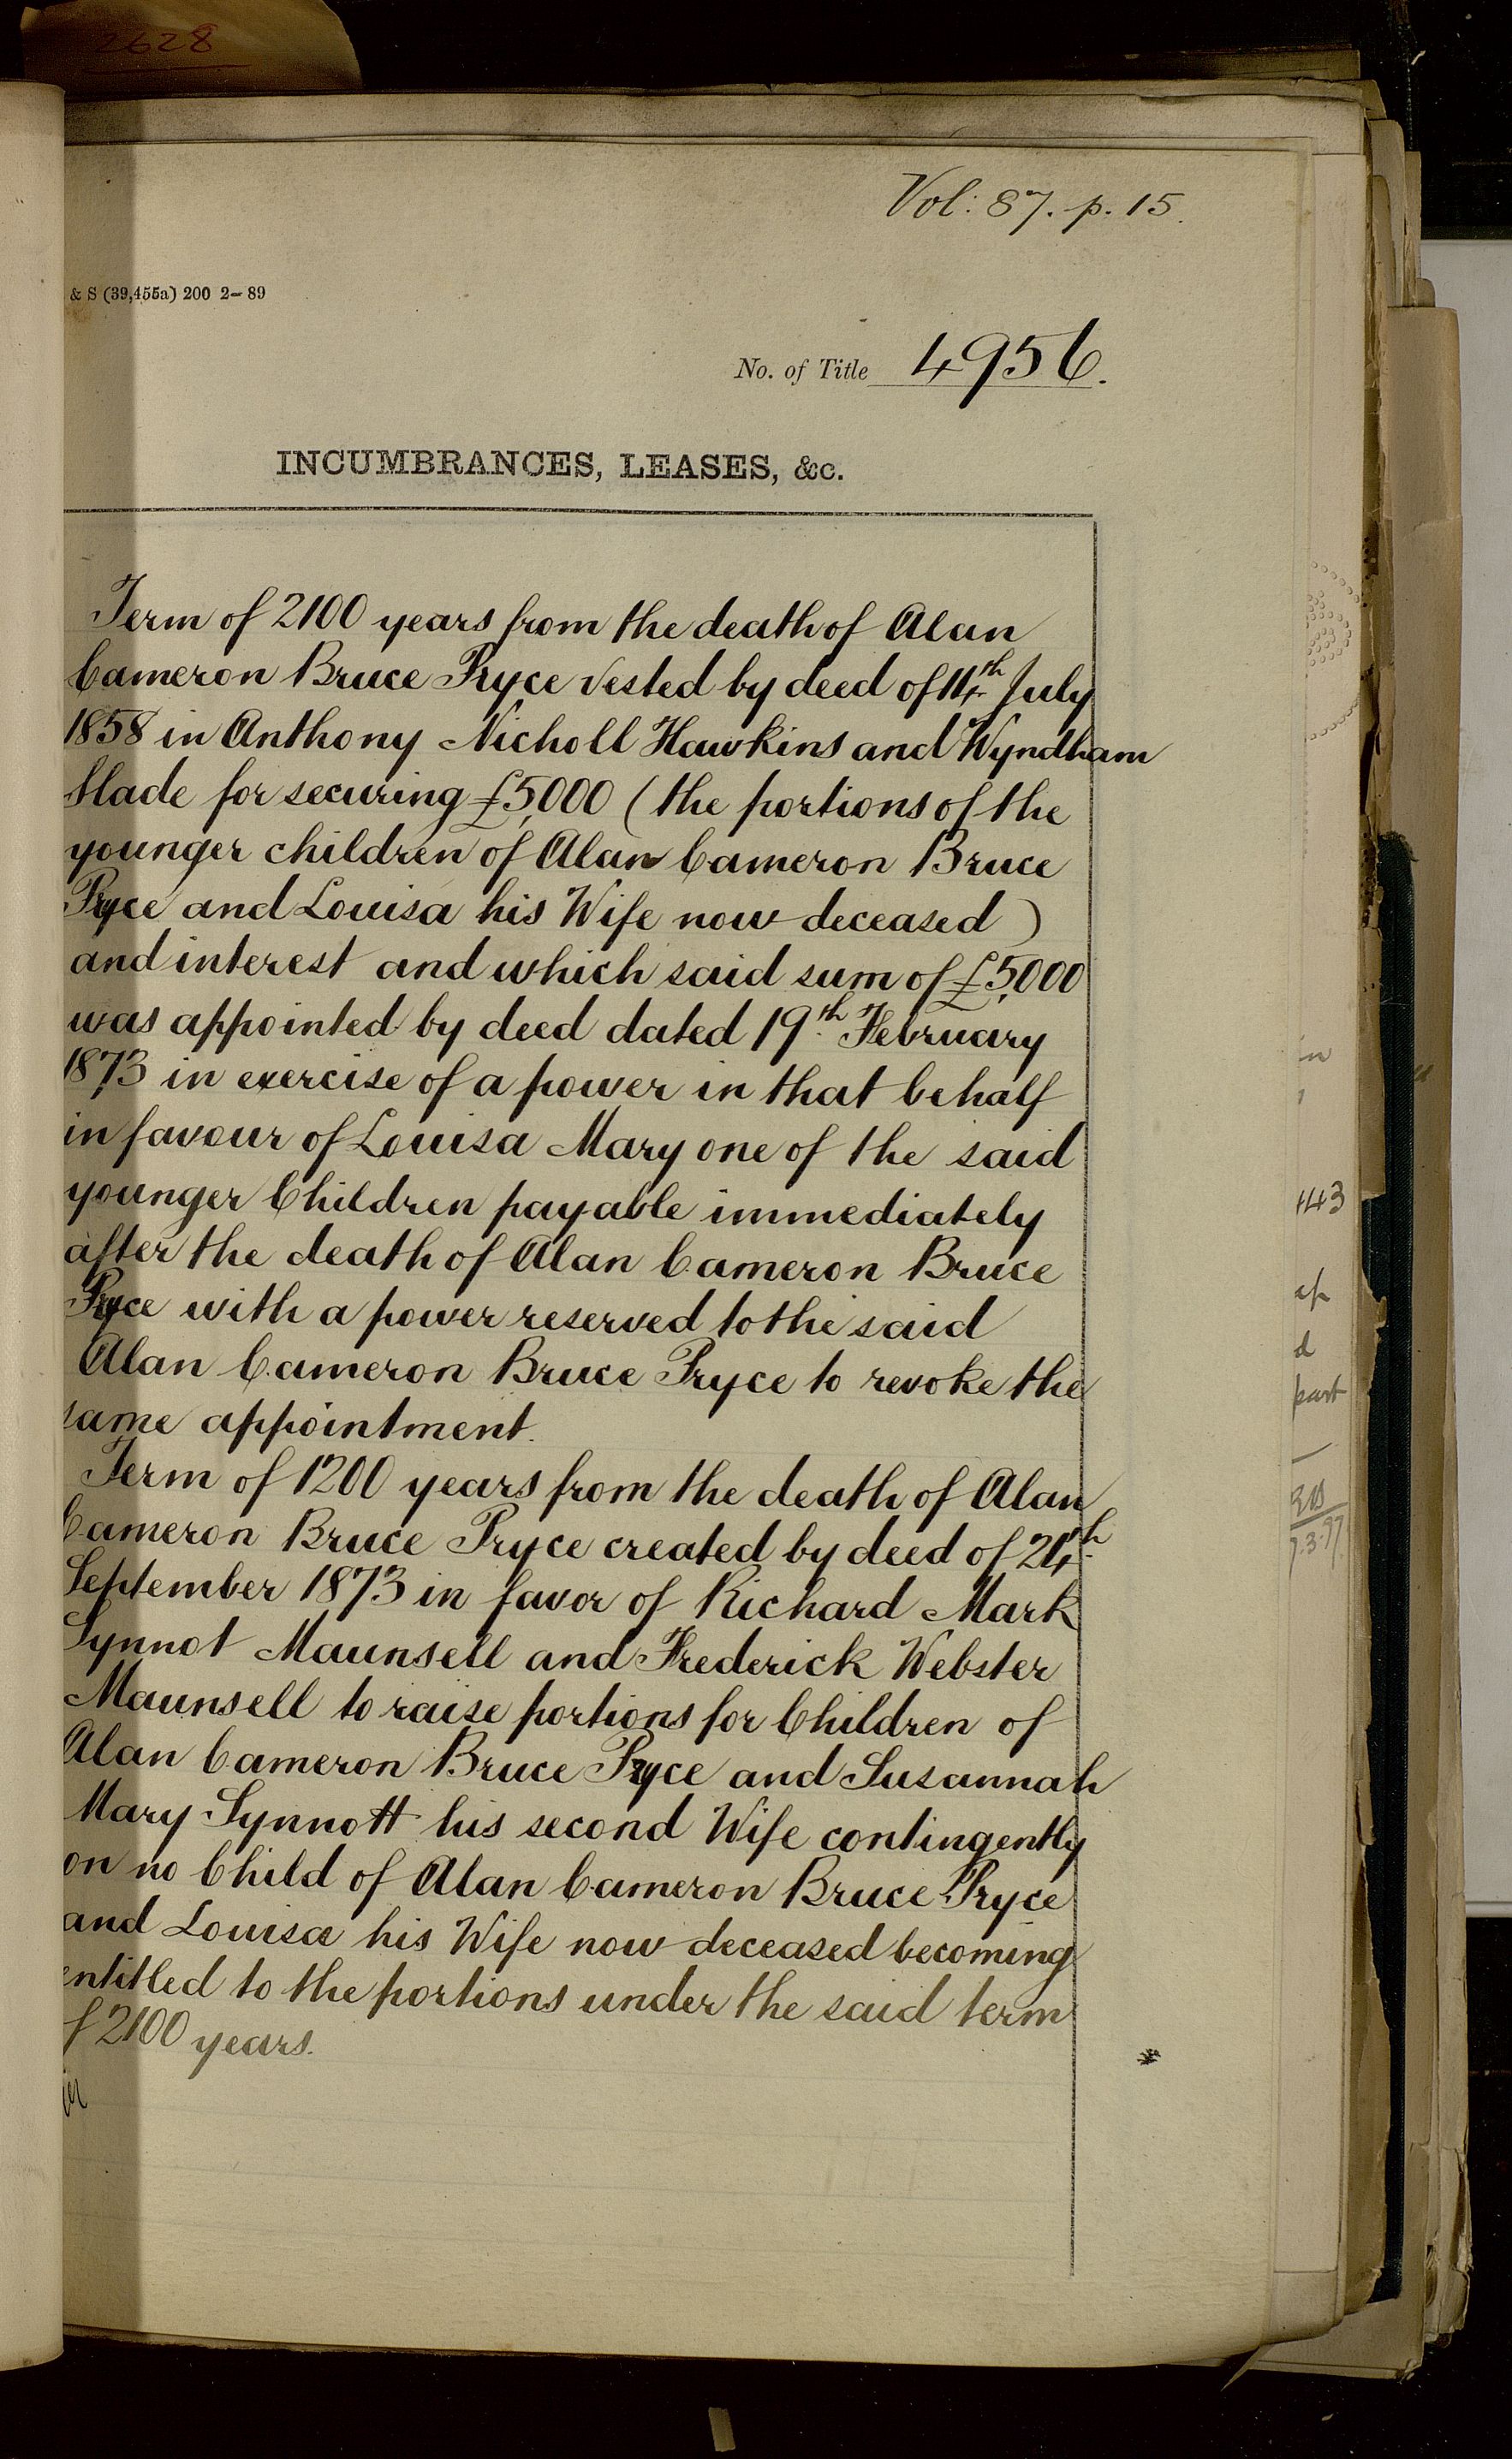 2628
Vol: 87. p. 15.
& S (39,455a) 200 2-89
No. of Title 4956.
INCUMBRANCES, LEASES, &c.
Term of 2100 years from the death of Alan
Cameron Bruce Pryce vested by deed of 14th July
1858 in Anthony Nicholl Hawkins and Wyndham
Slade for securing £5,000 (the portions of the
younger children of Alan Cameron Bruce
Pryce and Louisa his Wife now deceased)
and interest and which said sum of £5,000
was appointed by deed dated 19th February
1873 in exercise of a power in that behalf
in favour of Louisa Mary one of the said
younger Children payable immediately
after the death of Alan Cameron Bruce
Pryce with a power reserved to the said
Alan Cameron Bruce Pryce to revoke the
same appointment.
Term of 1200 years from the death of Alan
Cameron Bruce Pryce created by deed of 24th
September 1873 in favor of Richard Mark
Synnot Maunsell and Frederick Webster
Maunsell to raise portions for Children of
Alan Cameron Bruce Pryce and Susannah
Mary Synnott his second Wife contingently
on no Child of Alan Cameron Bruce Pryce
and Louisa his Wife now deceased becoming
entitled to the portions under the said term
f 2100 years.
in
443
d
part
7.3.97